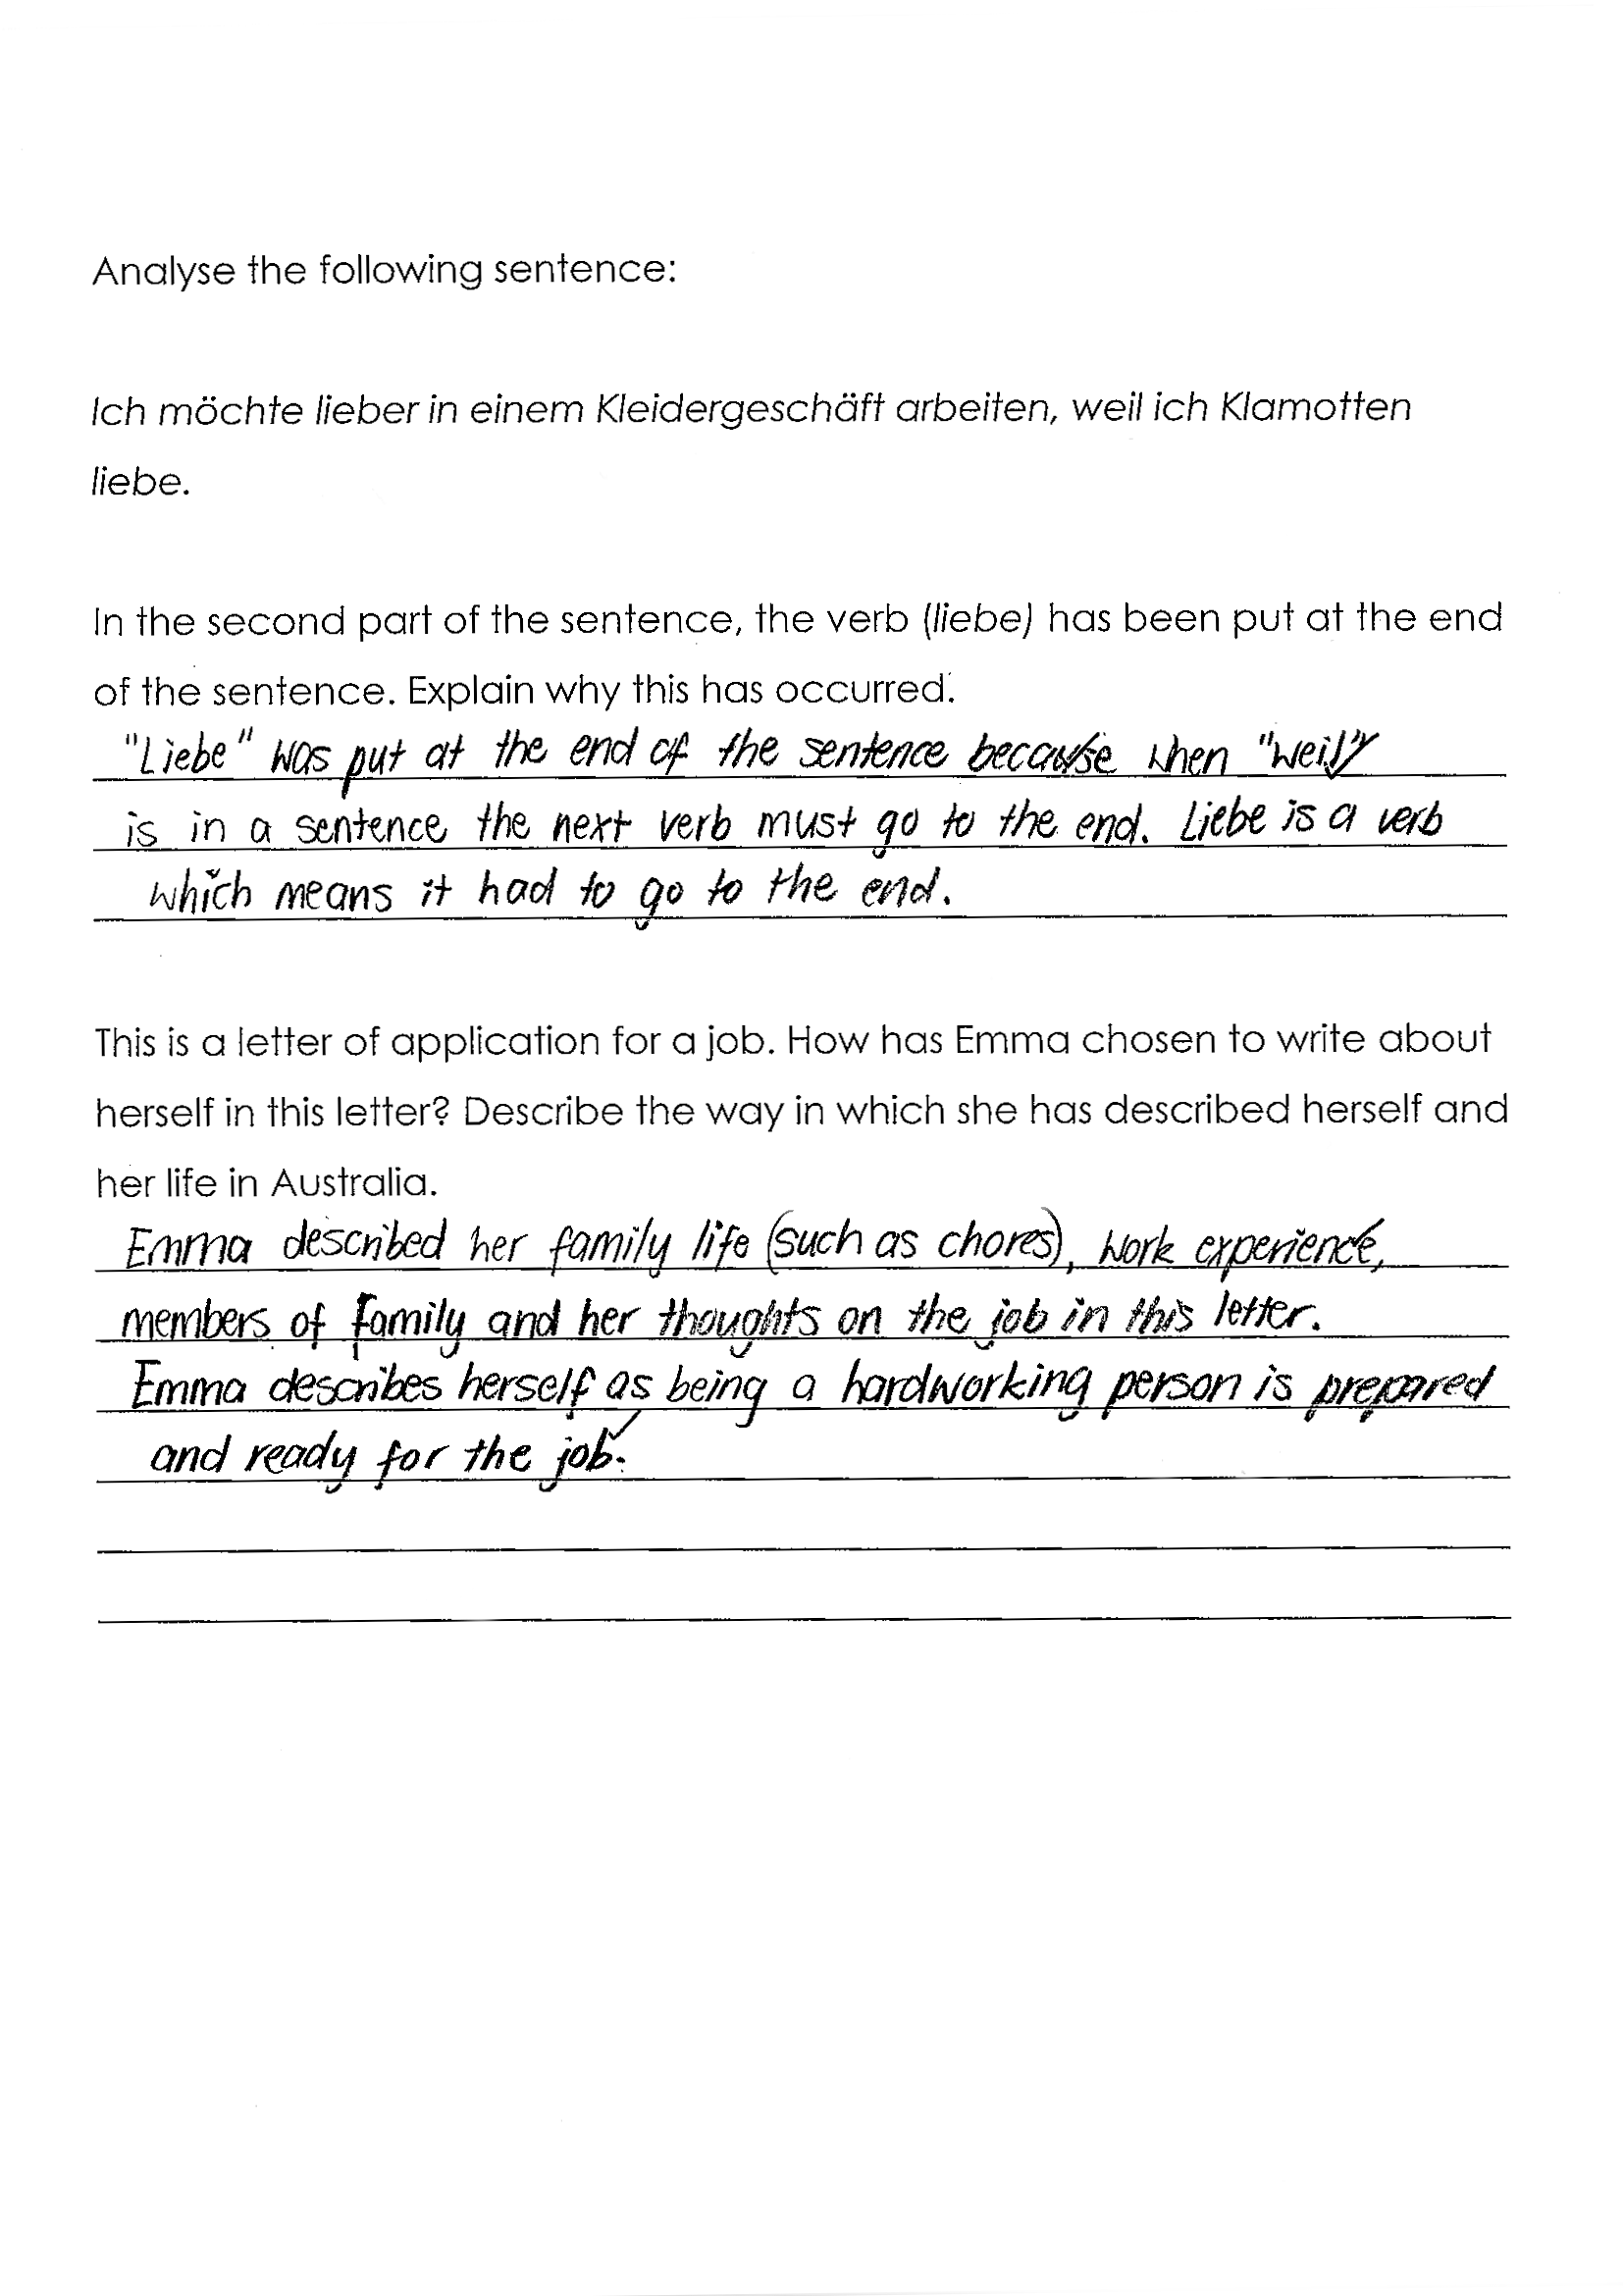 Analyse the following sentence:
Ich möchte lieber in einem Kleidergeschäft arbeiten, weil ich Klamotten
liebe.
In the second part of the sentence, the verb (liebe) has been put at the end
of the sentence. Explain why this has occurred.
"Liebe" was put at the end of the sentence because when "weil"
is in a sentence the next verb must go to the end. Liebe is a verb
which means it had to go to the end.
This is a letter of application for a job. How has Emma chosen to write about
herself in this letter? Describe the way in which she has described herself and
her life in Australia.
Emma described her family life (such as chores), work experience,
members of family and her thoughts on the job in this letter.
Emma describes herself as being a hardworking person is prepared
and ready for the job.